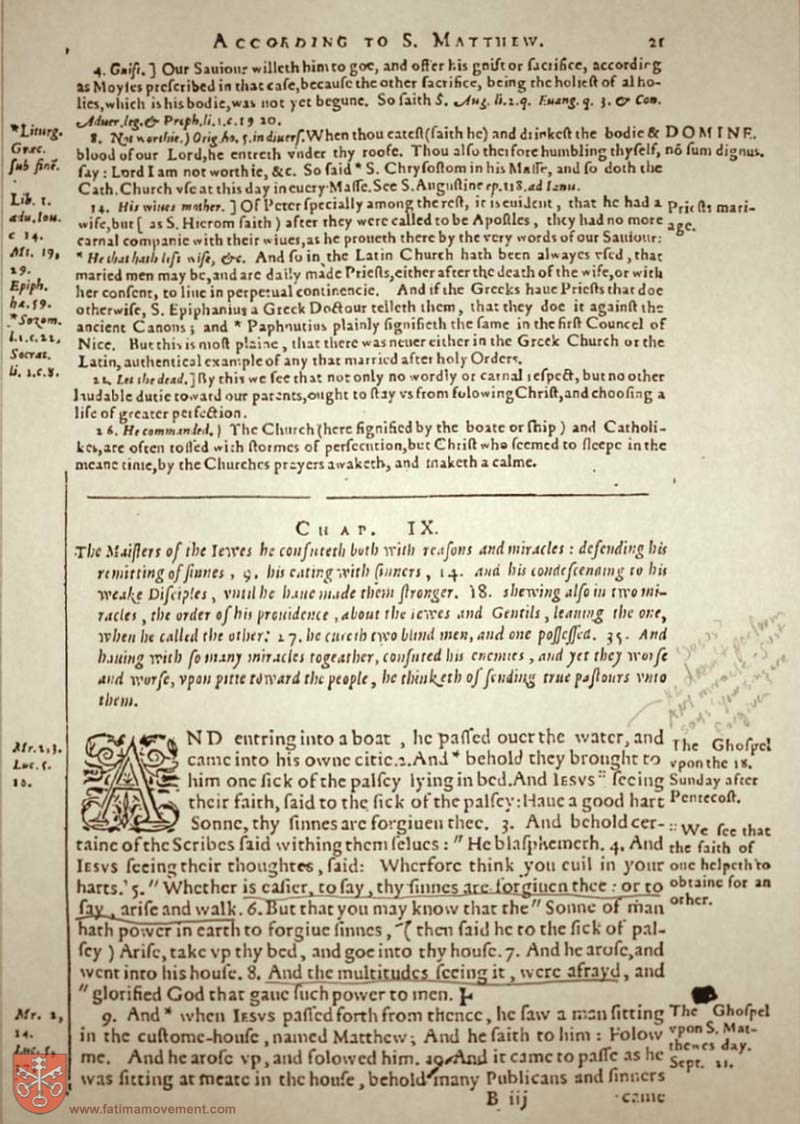 ACCORDING TO S. MATTHEW. 21
4. Guift.] Our Sauiour willeth him to goe, and offer his guift or sacrifice, according
as Moyses prescribed in that case, because the other sacrifice, being the holiest of al ho-
lies, which is his bodie, was not yet begune. So saith S. Aug. li. 2. q. Euang. q. 3. & Con.
Aduer. leg. & Proph. li. 1. c. 19 20.
8. Not worthie.) Orig. ho. 5. in diuers. When thou eatest (saith he) and drinkest the bodie &
blood of our Lord, he entreth vnder thy roofe. Thou also therfore humbling thyself,
say: Lord I am not worthie, &c. So said * S. Chrysostom in his Masse, and so doth the
Cath. Church vse at this day in euery Masse. See S. Augustine ep. 118. ad Ianu.
14. His wiues mother.] Of Peter specially among the rest, it is euident, that he had a
wife, but [ as S. Hierom saith ) after they were called to be Apostles, they had no more
carnal companie with their wiues, as he proueth there by the very words of our Sauiour:
* He that hath left wife, &c. And so in the Latin Church hath been alwayes vsed, that
maried men may be, and are daily made Priests, either after the death of the wife, or with
her consent, to liue in perpetual continencie. And if the Greeks haue Priests that doe
otherwise, S. Epiphanius a Greek Doctour telleth them, that they doe it against the
ancient Canons; and * Paphnutius plainly signifieth the same in the first Councel of
Nice. But this is most plaine, that there was neuer either in the Greek Church or the
Latin, authentical example of any that married after holy Orders.
22. Let the dead.] By this we see that not only no wordly or carnal respect, but no other
laudable dutie toward our parents, ought to stay vs from folowing Christ, and choosing a
life of greater perfection.
26. He commanded.) The Church (here signified by the boate or ship) and Catholi-
kes, are often tossed with stormes of persecution, but Christ who seemed to sleepe in the
meane time, by the Churches prayers awaketh, and maketh a calme.
*Liturg.
Græc.
sub fine.
Lib. 1.
adu. Iou.
c 14.
Mt. 19,
29.
Epiph.
ha. 59.
*Sozom.
l. 1. c. 22,
Socrat.
li. 1. c. 8.
DOMINE
nō sum dignus.
Priests mari-
age.
CHAP. IX.
The Maisters of the Iewes he confuteth both with reasons and miracles: defending his
remitting of sinnes, 9. his eating with sinners, 14. and his condescending to his
weake Disciples, vntil he haue made them stronger. 18. shewing also in two mi-
racles, the order of his prouidence, about the Iewes and Gentils, leauing the one,
when he called the other: 27. he cureth two blind men, and one possessed. 35. And
hauing with so many miracles togeather, confuted his enemies, and yet they worse
and worse, vpon pitie toward the people, he thinketh of sending true pastours vnto
them.
AND entring into a boat, he passed ouer the water, and
came into his owne citie. 2. And * behold they brought to
him one sick of the palsey lying in bed. And IESVS :: seeing
their faith, said to the sick of the palsey: Haue a good hart
Sonne, thy sinnes are forgiuen thee. 3. And behold cer-
taine of the Scribes said withing them selues: " He blasphemeth. 4. And
IESVS seeing their thoughtes, said: Wherfore think you euil in your
harts. 5. " Whether is easier, to say, thy sinnes are forgiuen thee: or to
say, arise and walk. 6. But that you may know that the " Sonne of man
hath power in earth to forgiue sinnes, ( then said he to the sick of pal-
sey ) Arise, take vp thy bed, and goe into thy house. 7. And he arose, and
went into his house. 8. And the multitudes seeing it, were afrayd, and
" glorified God that gaue such power to men.
9. And * when IESVS passed forth from thence, he saw a man sitting
in the custome-house, named Matthew; And he saith to him: Folow
me. And he arose vp, and folowed him. 10. And it came to passe as he
was sitting at meate in the house, behold many Publicans and sinners
B iij came
Mr. 2, 3.
Luc. 5.
18.
Mr. 2,
14.
Luc. 5,
The Ghospel
vpon the 18.
Sunday after
Pentecost.
:: We see that
the faith of
one helpeth to
obtaine for an
other.
The Ghospel
vpon S. Mat-
thewes day.
Sept. 21.
www.fatimamovement.com